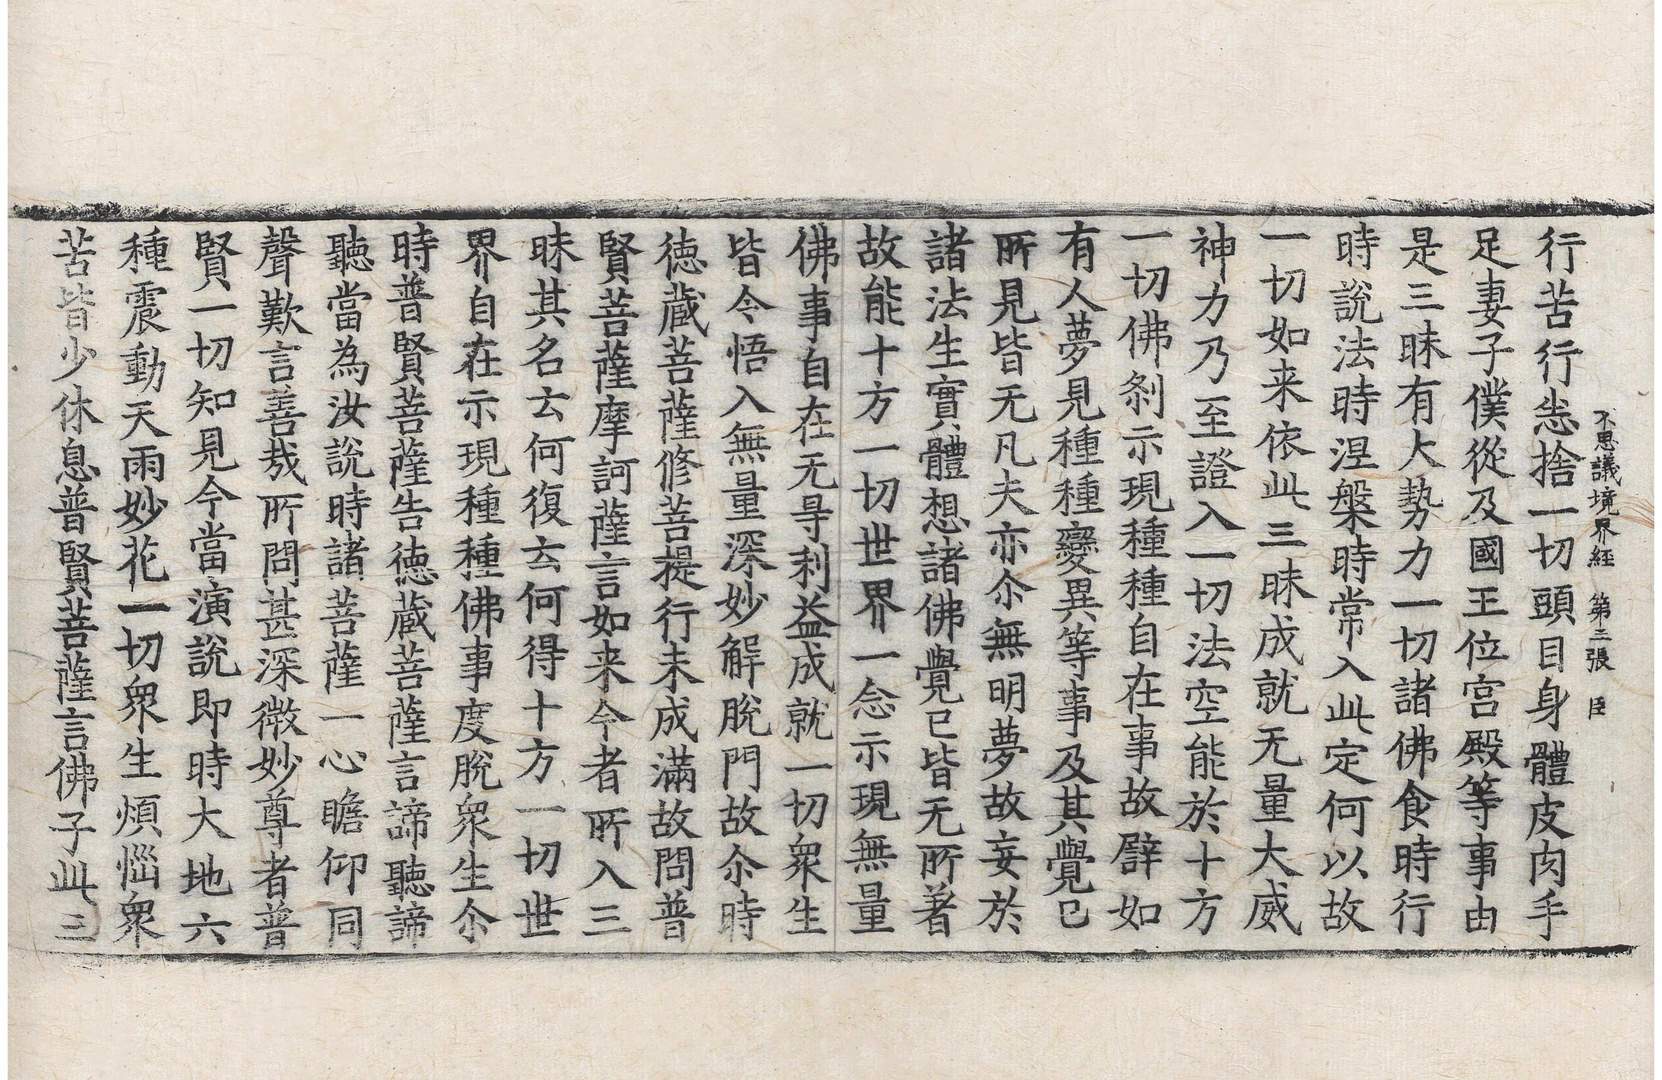 不思議境界經　第三張　臣
行苦行悉捨一切頭目身體皮肉手
足妻子僕從及國王位宮殿等事由
是三昧有大勢力一切諸佛食時行
時說法時涅槃時常入此定何以故
一切如来依此三昧成就无量大威
神力乃至證入一切法空能於十方
一切佛刹示現種種自在事故譬如
有人夢見種種變異等事及其覺已
所見皆无凡夫亦尒無明夢故妄於
諸法生實體想諸佛覺已皆无所著
故能十方一切世界一念示現無量
佛事自在无㝵利益成就一切衆生
皆令悟入無量深妙解脫門故尒時
德藏菩薩修菩提行未成滿故問普
賢菩薩摩訶薩言如来今者所入三
昧其名云何復云何得十方一切世
界自在示現種種佛事度脫衆生尒
時普賢菩薩告德藏菩薩言諦聽諦
聽當為汝說時諸菩薩一心瞻仰同
聲歎言善哉所問甚深微妙尊者普
賢一切知見今當演說即時大地六
種震動天雨妙花一切衆生煩惱衆
苦皆少休息普賢菩薩言佛子此三